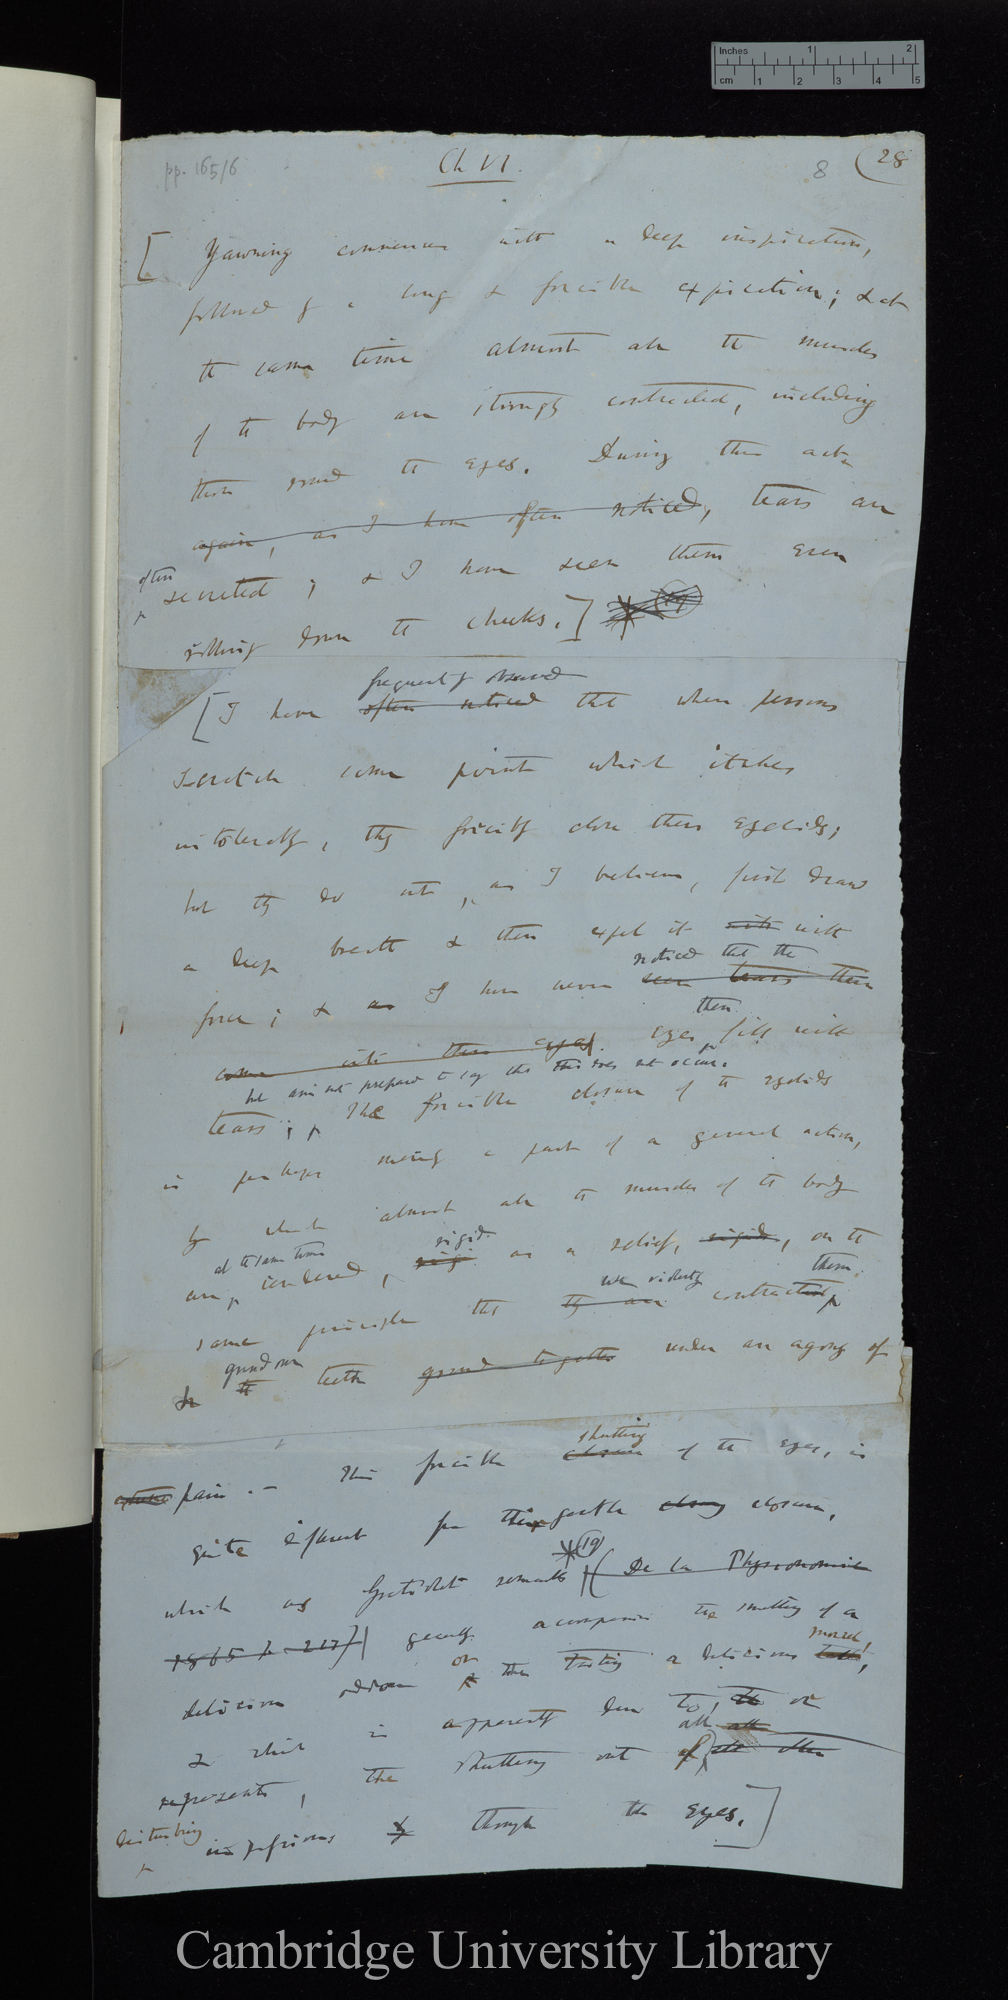 Inches 1 2
cm 1 2 3 4 5
pp. 165/6 Ch VI. 8 (28
[ Yawning commences with a deep inspiration,
followed by a long & forcible expiration; & at
the same time almost all the muscles
of the body are strongly contracted, including
those round the eyes. During this act
again, as I have often noticed, tears are
often
secreted ; & I have seen them even
rolling down the cheeks.] (19)
frequently observed
[ I have often noticed that when persons
scratch some point which itches
intolerably, they forcibly close their eyelids;
but they do not, as I believe, first draw
a deep breath & then expel it with with
noticed that the
force ; & as I have never seen tears then
then
come into their eyes. eyes fill with
but am not prepared to say that this does not occur.
tears ; The forcible closure of the eyelids
is perhaps merely a part of a general action,
by which almost all the muscles of the body
at the same time rigid
are, rendered, rigi as a relief, rigid, on the
we violently them
same principle that they are contracted
grind our
& the teeth ground together under an agony of
shutting
extreme pain. — This forcible closure of the eyes, is
quite different from this gentle closing closure,
(19)
which as Gratiolet remarks (De la Physionomie
1865 p. 217) generally accompanies the smelling of a
or morsel
delicious odour the tasting a delicious ,
& which is apparently due to, or
all
represents, the shutting out of all other
disturbing
impressions by through the eyes.]
Cambridge University Library